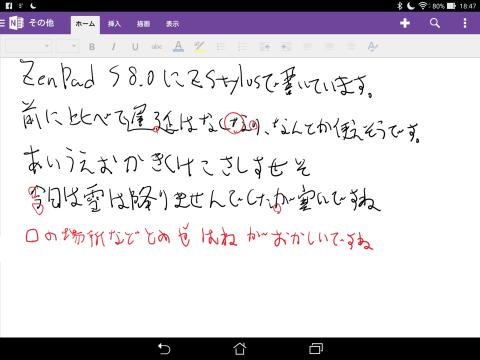 18:47
80%
その他
ホーム
挿入
描画
表示
ZenPad S 8.0にZ Stylusで書いています。
前に比べて遅延はなくなり、なんとか使えそうです。
あいうえおかきくけこさしすせそ
今日は雪は降りませんでしたが寒いですね
□の場所などとめやはねがおかしいですね